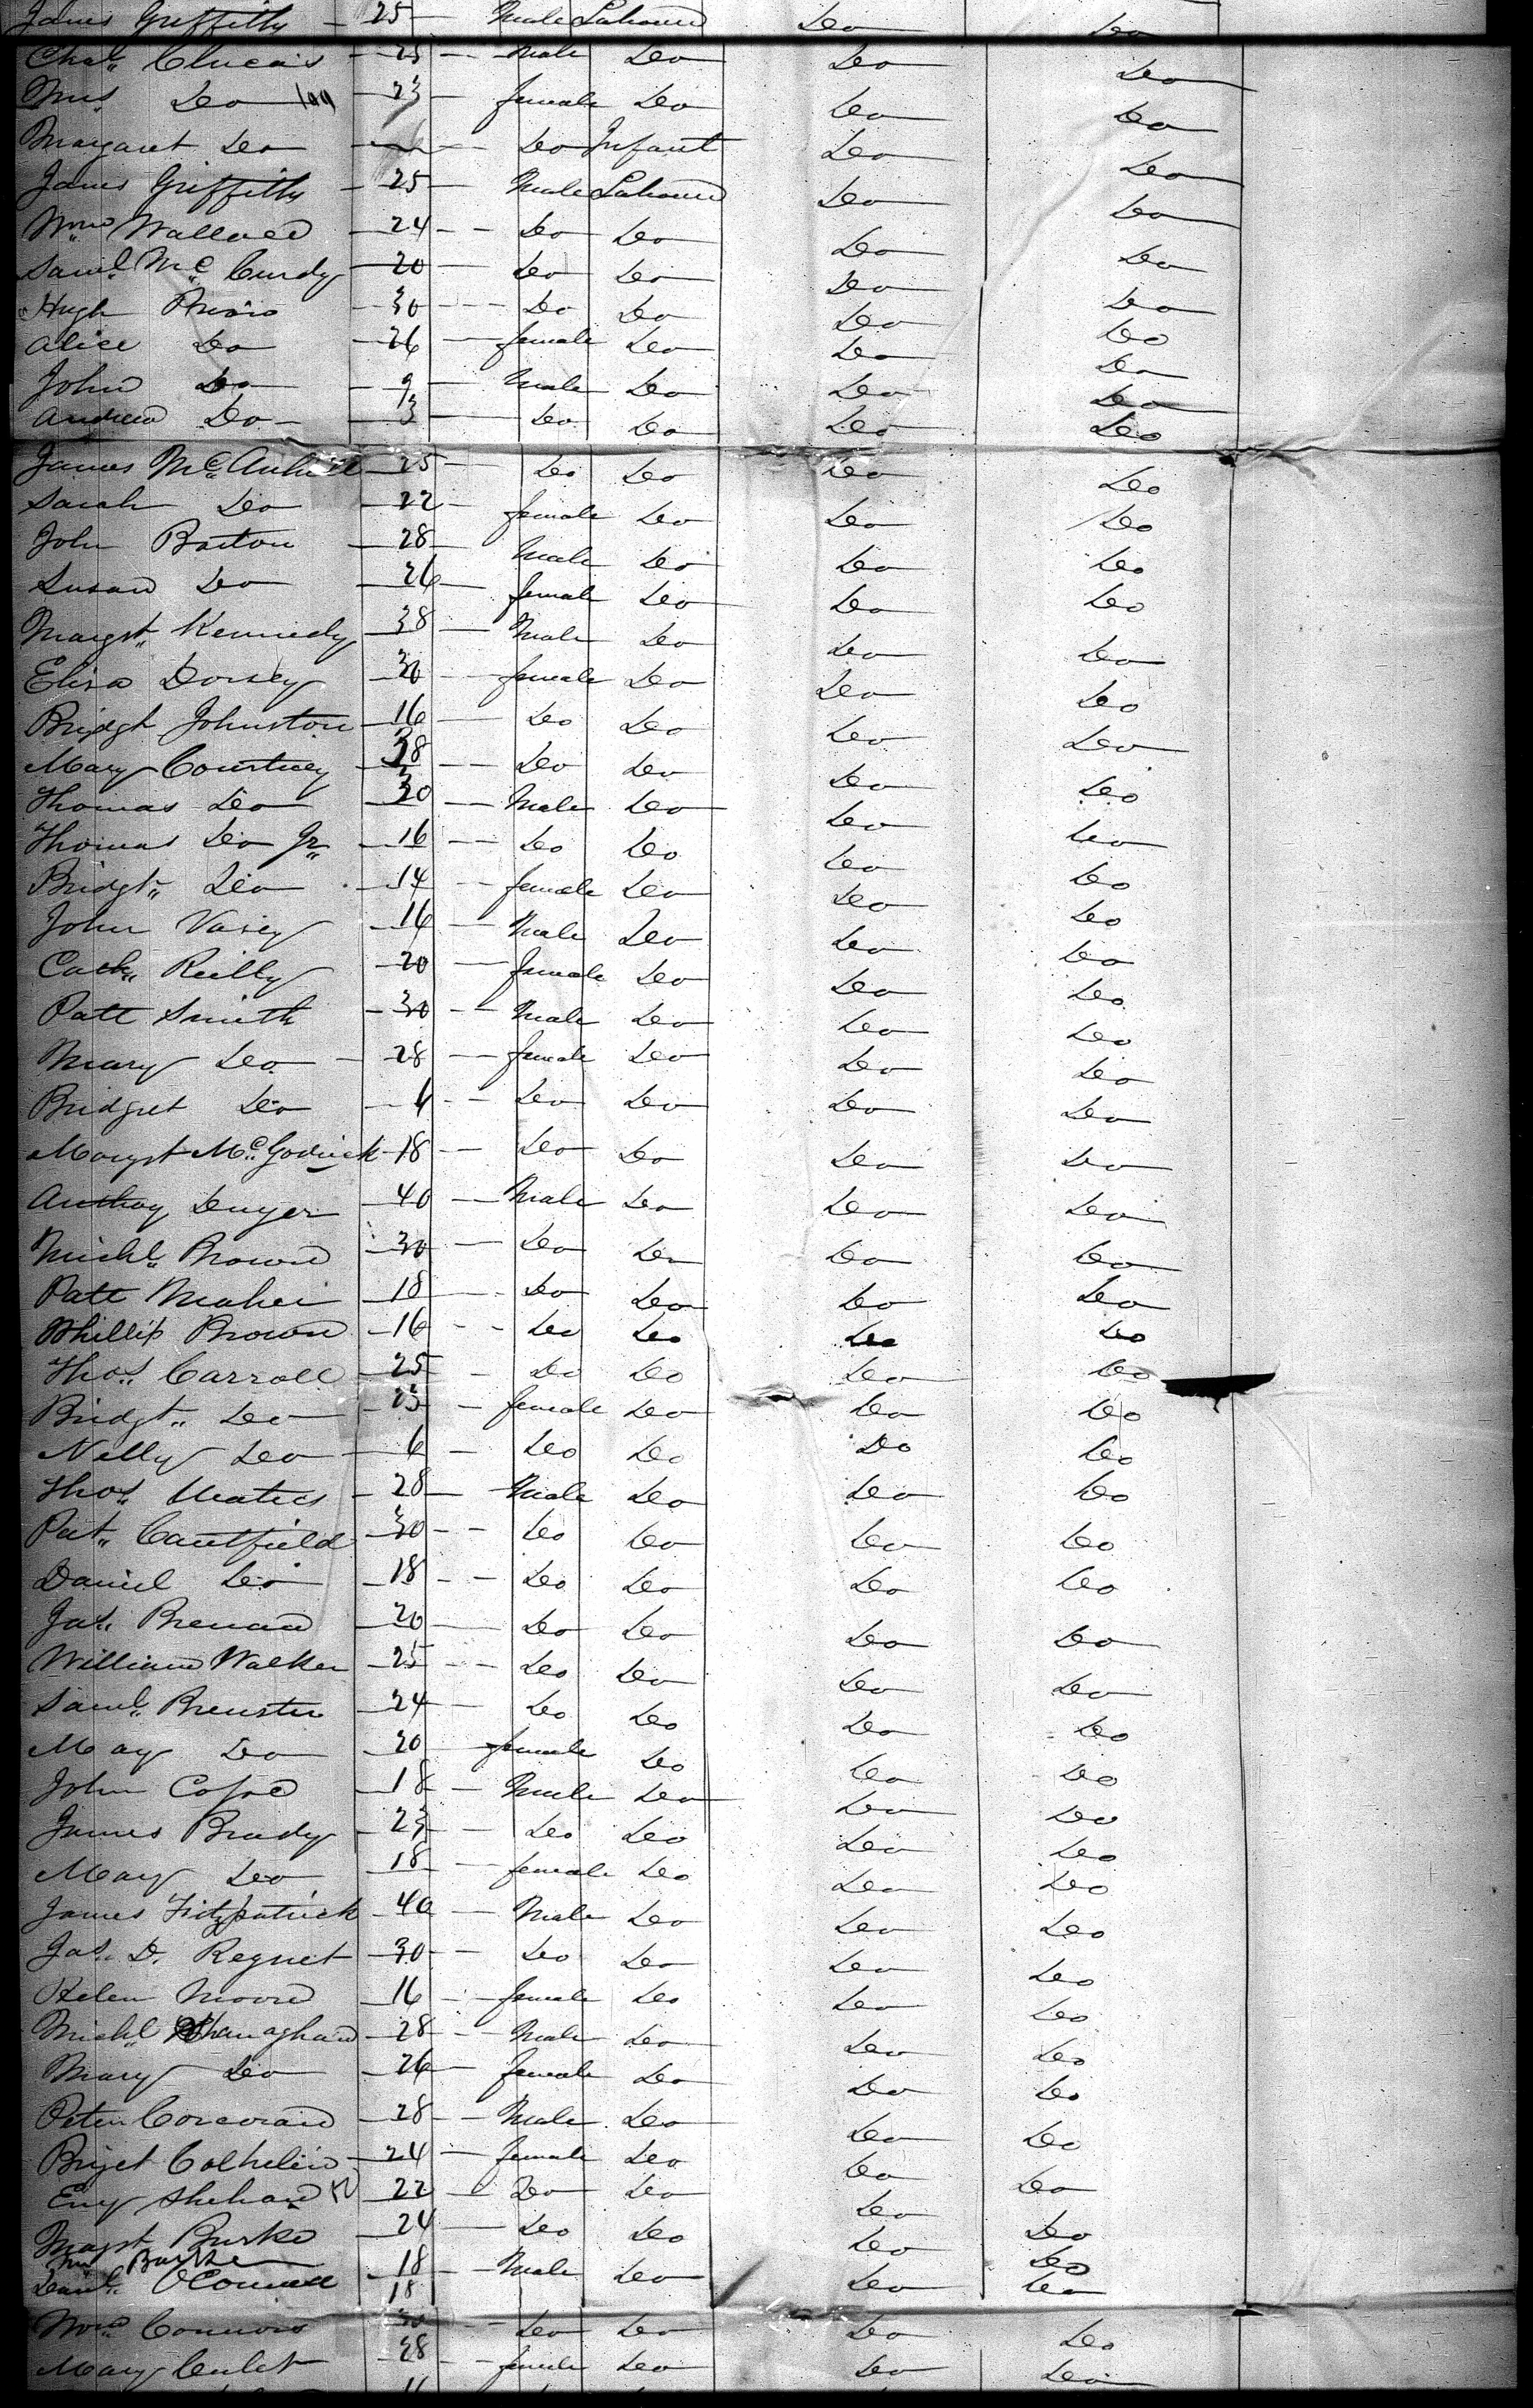 James Griffith 25 Male Labourer Do Do
Chas. Clucas 25 Male Do Do Do
Mrs Do 23 female Do Do Do
Margaret Do Do Infant Do Do
James Griffith 25 Male Labourer Do Do
Wm Wallace 24 Do Do Do Do
Saml. Mc Curdy 20 Do Do Do Do
Hugh 30 Do Do Do Do
Alice Do 26 female Do Do Do
John Do 9 Male Do Do Do
Andrew Do 3 Do Do Do Do
James Mc 25 Do Do Do Do
Sarah Do 22 female Do Do Do
John Barton 28 Male Do Do Do
Susan Do 26 female Do Do Do
Margt. Kennedy 38 Male Do Do Do
Eliza Dorsey 30 female Do Do Do
Bridgt Johnston 16 Do Do Do Do
Mary Courtney 38 Do Do Do Do
Thomas Do 30 Male Do Do Do
Thomas Do Jr. 16 Do Do Do Do
Bridgt. Do 14 female Do Do Do
John Vasey 16 Male Do Do Do
Cath. Reilly 20 female Do Do Do
Patt Smith 30 Male Do Do Do
Mary Do 28 female Do Do Do
Bridget Do Do Do Do Do
Margt Mc. Godrick 18 Do Do Do Do
Anthoy Dwyer 40 Male Do Do Do
Michl. Brown 30 Do Do Do Do
Patt Maher 18 Do Do Do Do
Phillip Brown 16 Do Do Do Do
Thos. Carroll 25 Do Do Do Do
Bridgt. Do 23 female Do Do Do
Nelly Do 6 Do Do Do Do
Thos. 28 Male Do Do Do
Pat. Caulfield 30 Do Do Do Do
Daniel Do 18 Do Do Do Do
Jas. Brenan 20 Do Do Do Do
William Walker 25 Do Do Do Do
Saml. Brewster 24 Do Do Do Do
May Do 20 female Do Do Do
John 18 Male Do Do Do
James Brady 23 Do Do Do Do
Mary Do 18 female Do Do Do
James Fitzpatrick 40 Male Do Do Do
Jas. D. Regnet 30 Do Do Do Do
Helen Moore 16 female Do Do Do
Michl. Shanaghan 28 Male Do Do Do
Mary Do 26 female Do Do Do
Peter Corcoran 28 Male Do Do Do
Brijet 24 female Do Do Do
Eny Shehan 22 Do Do Do Do
Magt Burke 24 Do Do Do Do
Burke 18 Male Do Do Do
Danl. OConnell 18 Do Do
Wm Connors 30 Do Do Do Do
Mary 28 female Do Do Do